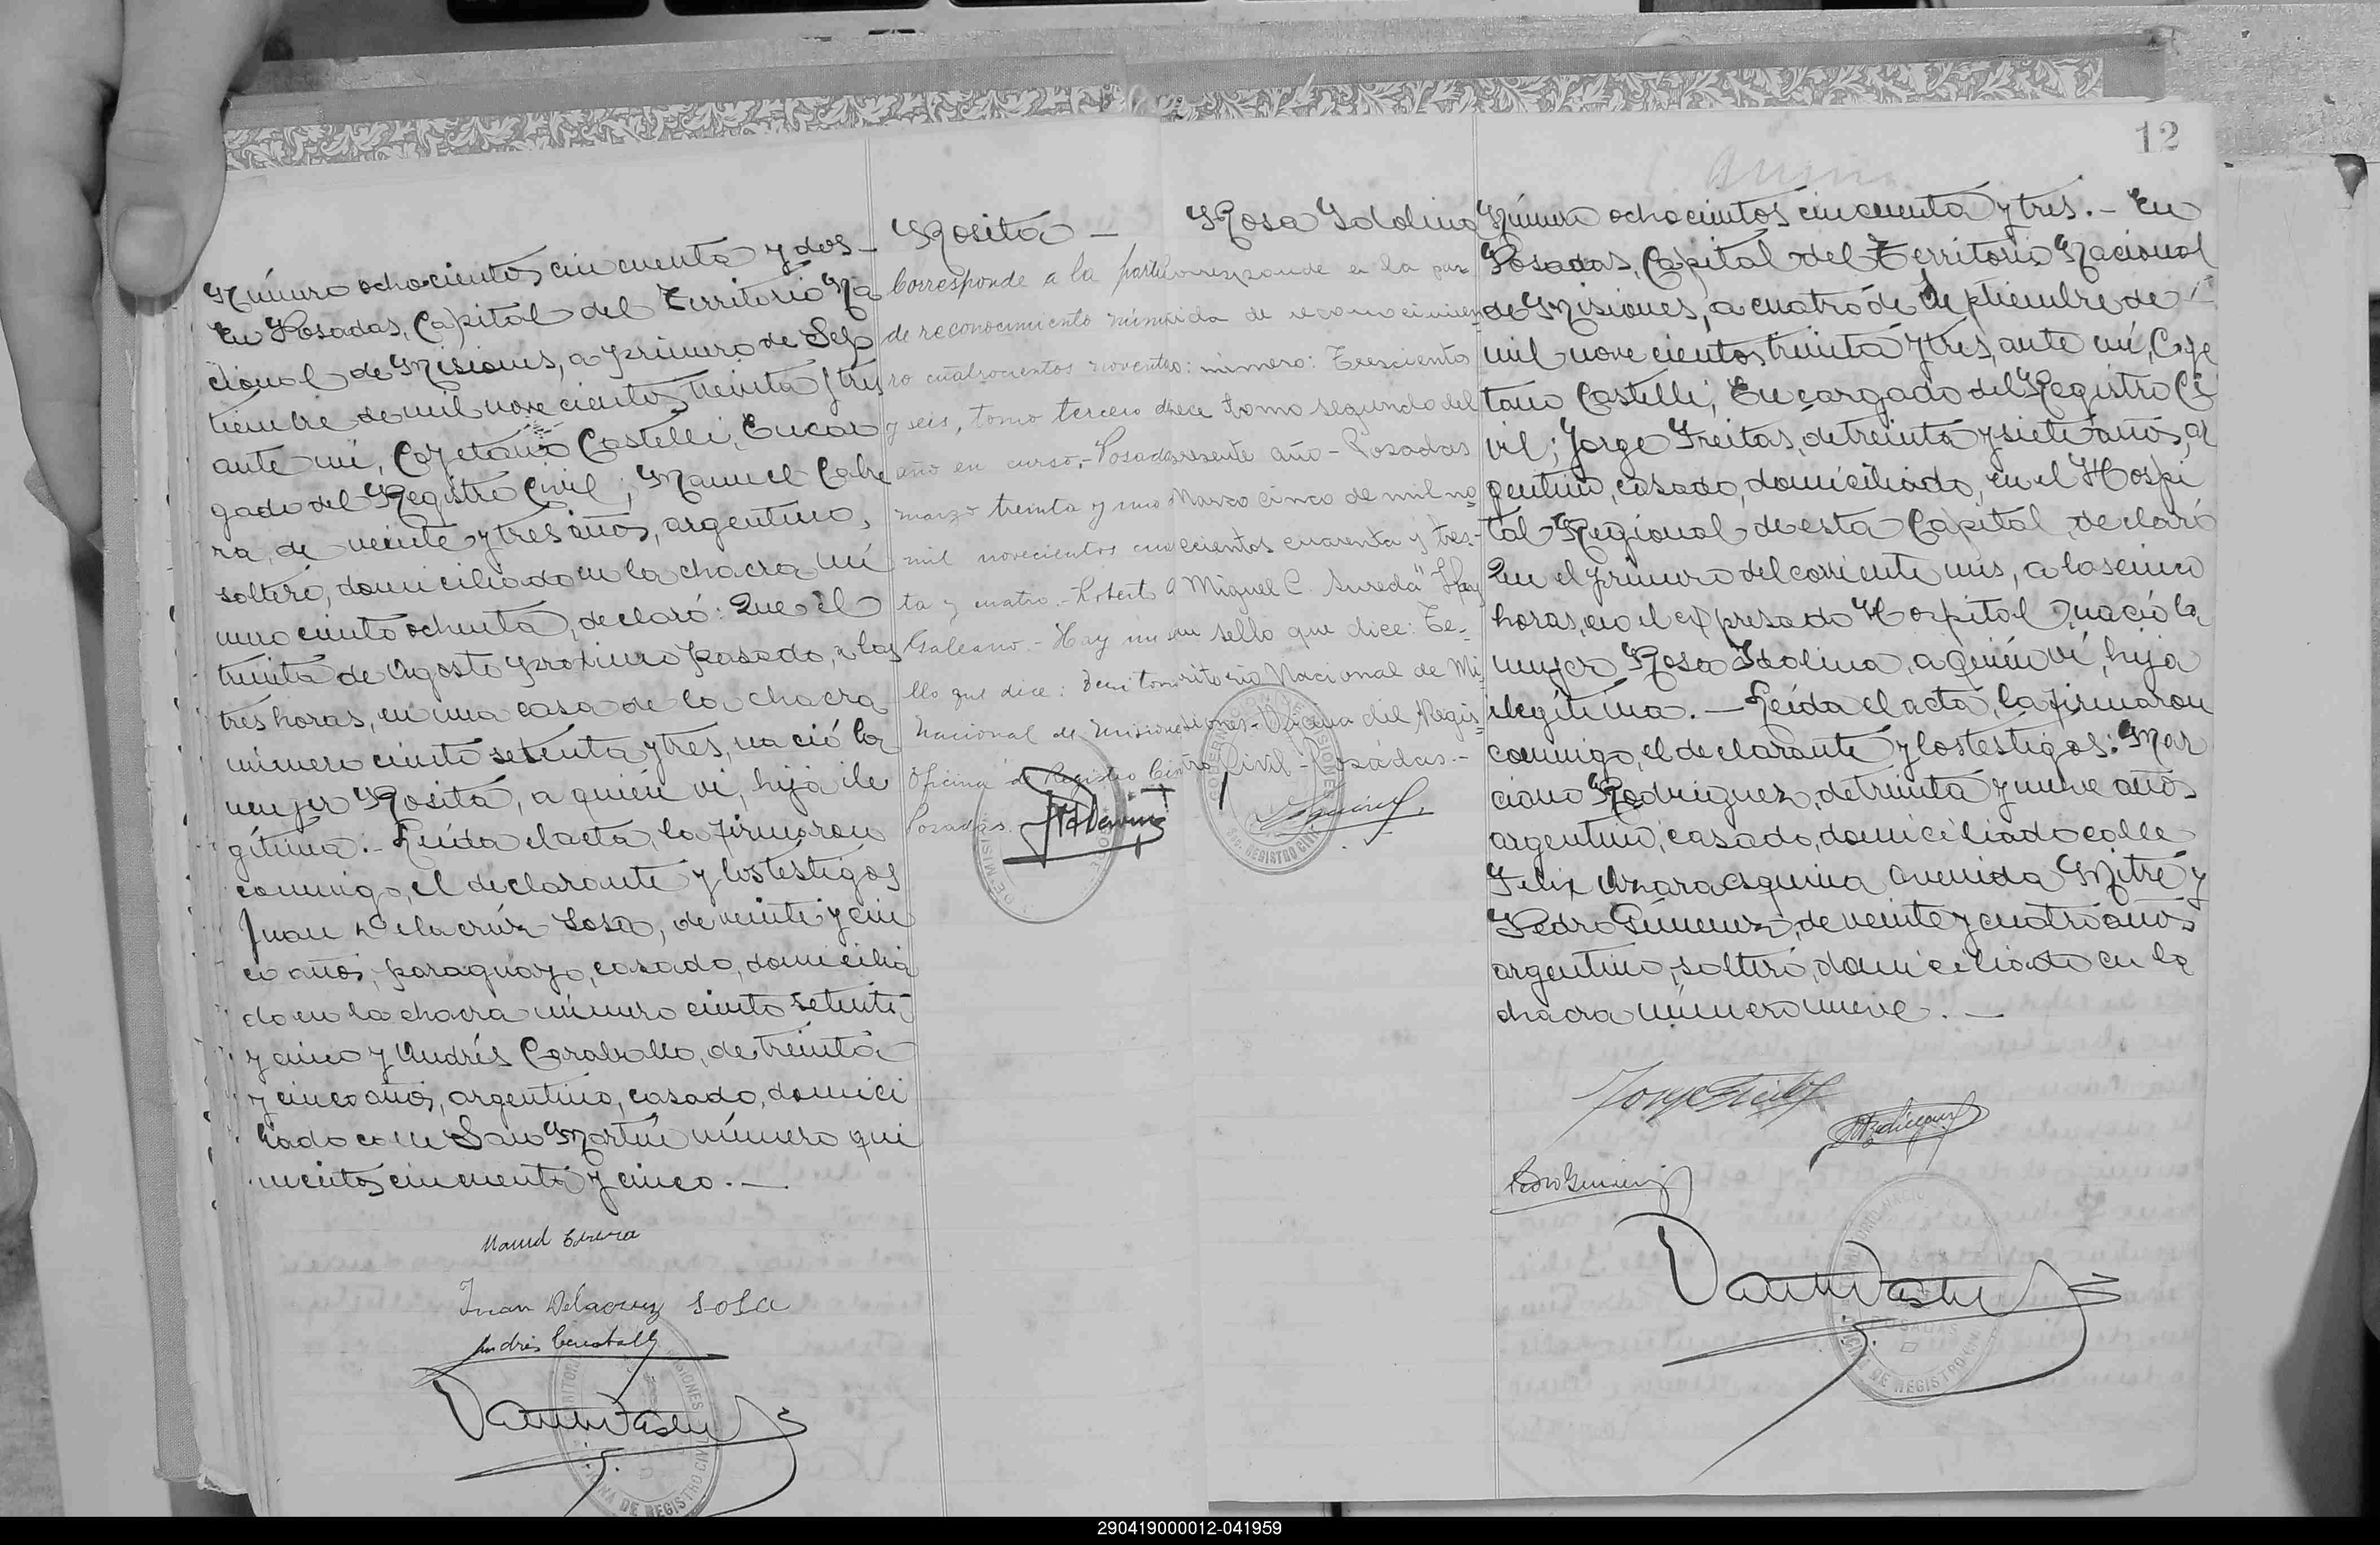 Número ochocientos cincuenta y dos –
En Posadas, Capital del Territorio Na
cional de Misiones, a primero de Sep
tiembre de mil novecientos treinta y tres
ante mí, Cayetano Castelli, Encar
gado del Registro Civil; Manuel Cabre
ra, de veinte y tres años, argentino,
soltero, domiciliado en la chacra nú
mero ciento ochenta, declaró: Que el
treinta de Agosto próximo pasado, a las
tres horas, en una casa de la chacra
número ciento setenta y tres, nació la
mujer Rosita, a quién ví, hija ile
gítima.- Leída el acta, la firmaron
conmigo, el declarante y los testigos
Juan Delacrúz Sosa, de veinte y cin
co años, paraguayo, casado, domicilia
do en la chacra número ciento setenta
y cinco y Andrés Caraballo, de treinta
y cinco años, argentino, casado, domici
liado calle San Martín número qui
nientos cincuenta y cinco.—
Juan Delacruz Sosa
Rosita —
Corresponde a la parti
de reconocimiento núme
ro cuatrocientos noventa
y seis, tomo tercero del
año en curso.- Posadas
marzo treinta y uno
mil novecientos cuaren
ta y cuatro.- Robert
Galeano.- Hay un se
llo que dice: Territorio
Nacional de Misiones
Oficina de Registro Civil
Posadas.
Rosa Idolina
Corresponde a la par
tida de reconocimien
to: número: Trescientos
trece tomo segundo del
presente año - Posadas
Marzo cinco de mil no
vecientos cuarenta y tres-
Miguel C. Sureda" Hay
un sello que dice: Te-
rritorio Nacional de Mi
siones - Oficina del Regis
tro Civil - Posadas.-
12
Número ochocientos cincuenta y tres.- En
Posadas, Capital del Territorio Nacional
de Misiones, a cuatro de Septiembre de
mil novecientos treinta y tres, ante mí, Caye
tano Castelli, Encargado del Registro Ci
vil; Jorge Freitas, de treinta y siete años, ar
gentino, casado, domiciliado, en el Hospi
tal Regional de esta Capital, declaró
Que el primero del corriente mes, a las cinco
horas, en el expresado Hospital, nació la
mujer Rosa Idolina, a quién ví, hija
ilegítima.— Leída el acta, la firmaron
conmigo, el declarante y los testigos: Mar
ciano Rodriguez, de treinta y nueve años
argentino, casado, domiciliado calle
Felix Azara esquina Avenida Mitre y
Pedro Gimenez, de veinte y cuatro años
argentino, soltero, domiciliado en la
chacra número nueve.—
290419000012-041959